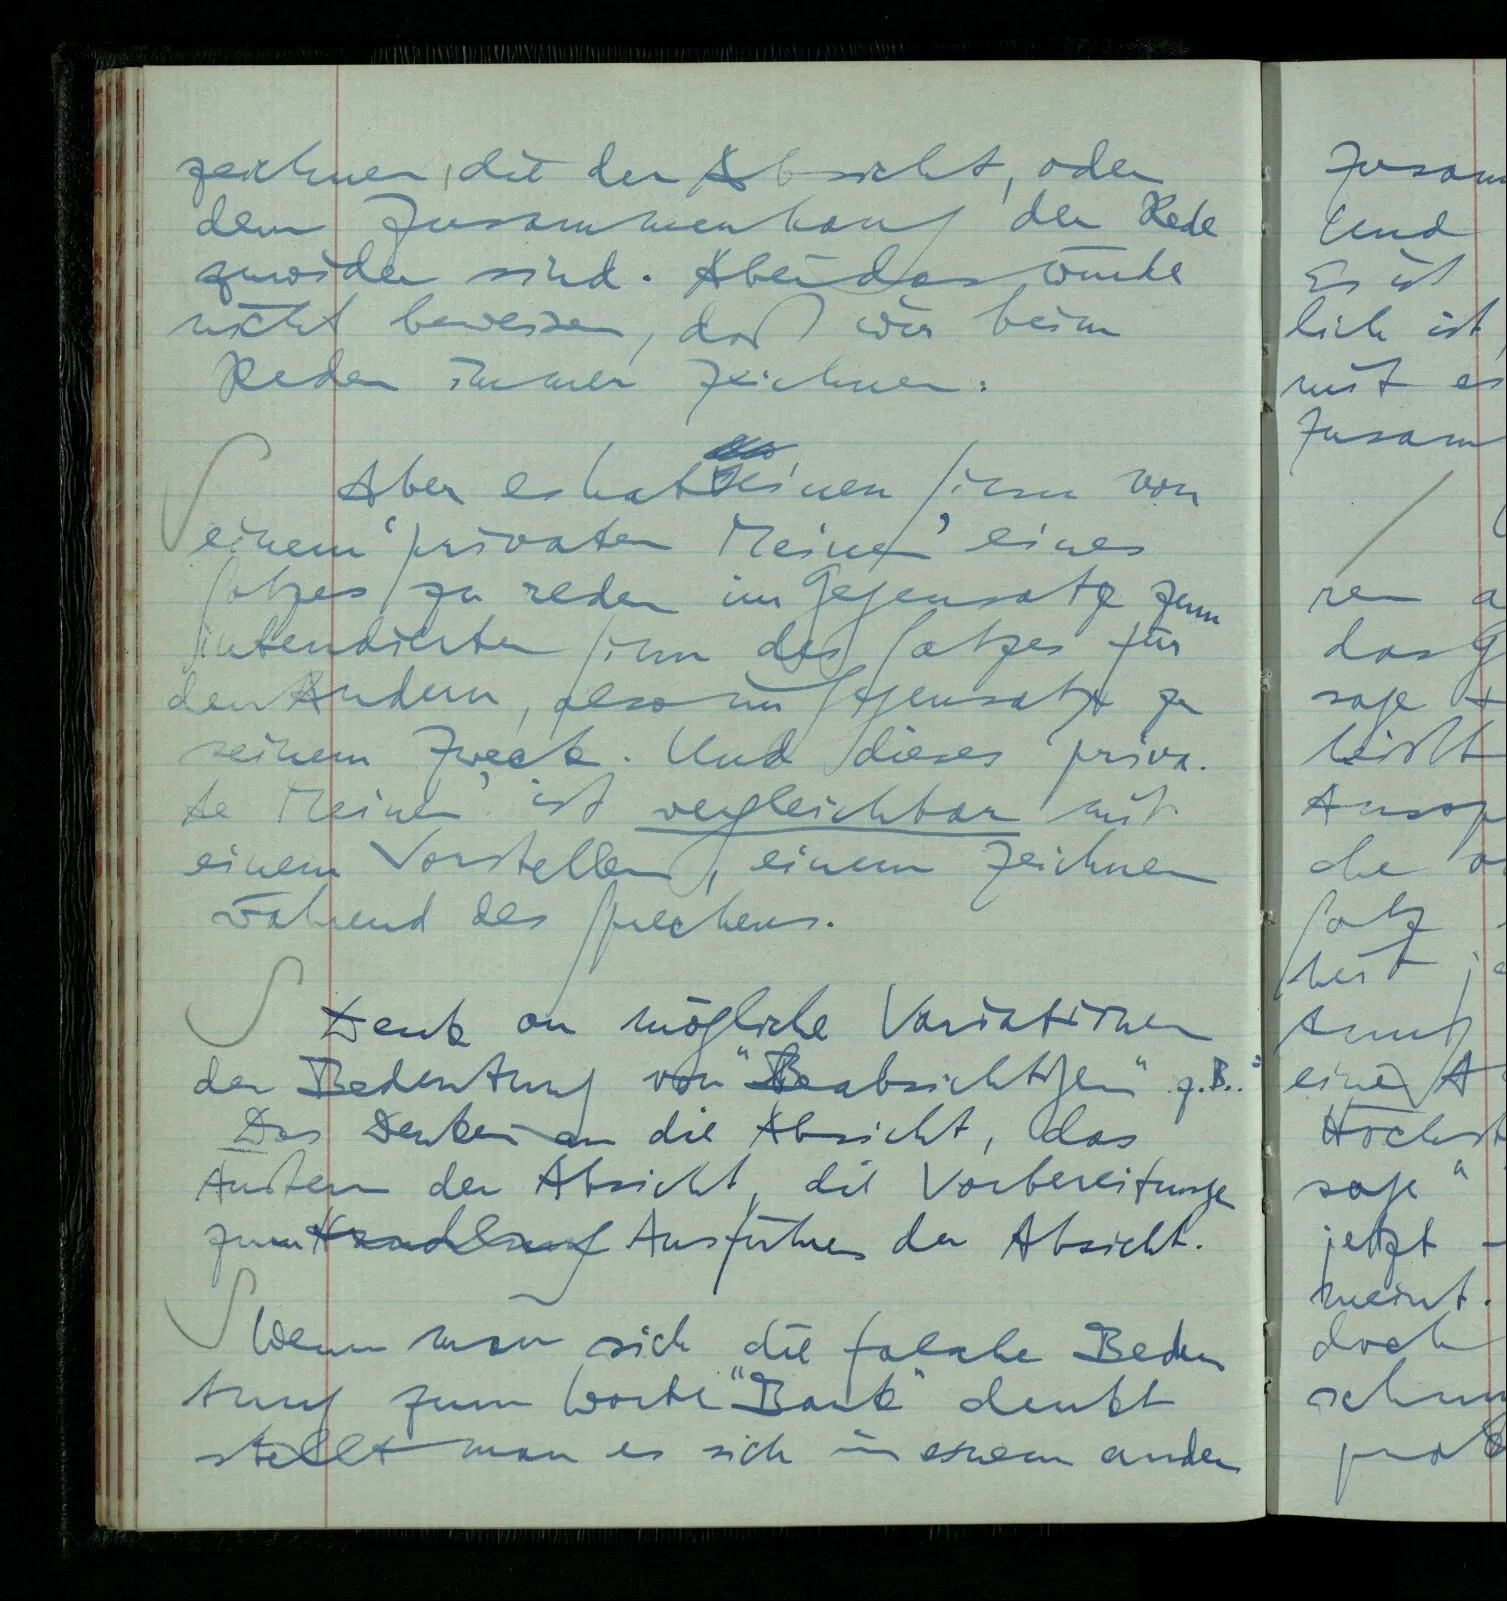 zeichnen, die der Absicht, oder
dem Zusammenhang der Rede
zuwider sind. Aber das würde
nicht beweisen, daß wir beim
Reden immer zeichnen.
Aber es hat einen Sinn von
einem ‘privaten Meinen’ eines
Satzes zu reden im Gegensatze zum
intendierten Sinn des Satzes für
den Andern, also im Gegensatz zu
seinem Zweck. Und dieses ‘priva-
te Meinen’ ist vergleichbar mit
einem Vorstellen, einem Zeichnen
während des Sprechens.
Denk an mögliche Variationen
der Bedeutung von "Beabsichtigen" z.B..:
Das Denken an die Absicht, das
Äußern der Absicht, die Vorbereitunge
zum Handlung Ausführen der Absicht.
Wenn man sich die falsche Bedeu
tung zum Worte "Bank" denkt
stellt man es sich in einem ander
Zusam
Und
Es ist
lich ist,
mit es
Zusam
ren a
das G
sage
heißt
Aussp
che
Satz
hest je
tung
einer A
Höchst
sage"
jetzt –
meint.
doch
schm